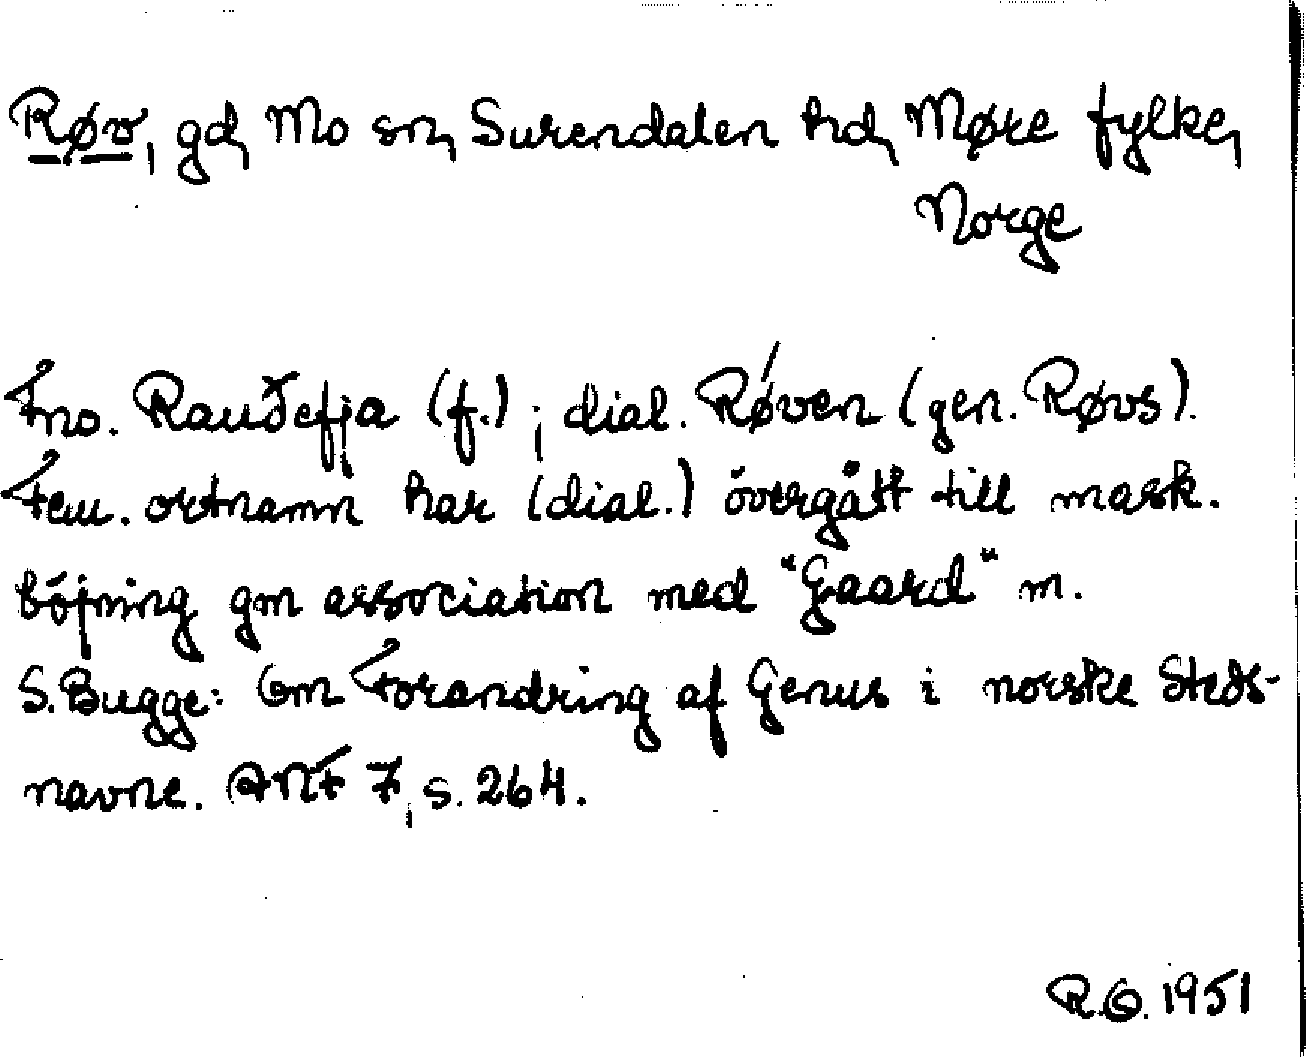 Røv, gd, Mo sn, Surendalen hd, Møre fylke,
Norge
Fno. Rauðefja (f.); dial. Røven (gen. Røvs).
Fem. ortnamn har (dial.) övergått till mask.
böjning gm association med "Gaard" m.
S. Bugge: Om Forandring af Genus i norske Steds-
navne. ANF 7, s. 264.
R.O. 1951